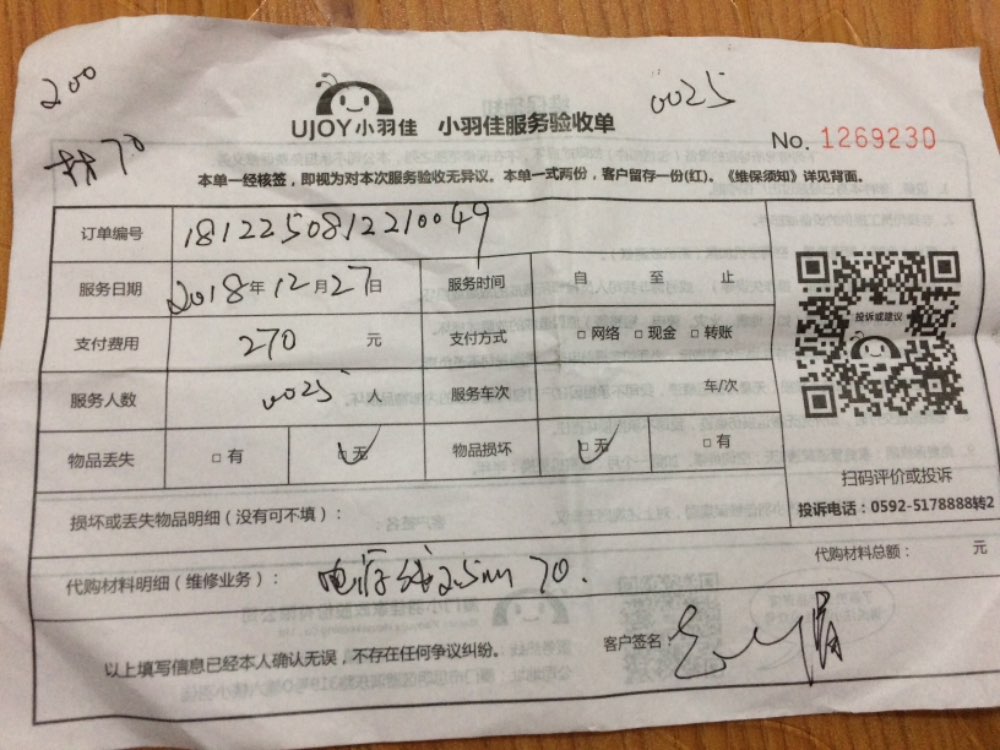 200
0025
UJOY小羽佳 小羽佳服务验收单
No. 1269230
材70
本单一经核签，即视为对本次服务验收无异议。本单一式两份，客户留存一份(红)。《维保须知》详见背面。
订单编号 1812250812210049
服务日期 2018年12月27日 服务时间 自 至 止
投诉或建议
支付费用 270 元 支付方式 □网络 □现金 □转账
服务人数 0025 人 服务车次 车/次
物品丢失 □有 □无 物品损坏 □无 □有
扫码评价或投诉
损坏或丢失物品明细（没有可不填）：
投诉电话：0592-5178888转2
代购材料明细（维修业务）： 电源线2.5m 70.
代购材料总额： 元
以上填写信息已经本人确认无误，不存在任何争议纠纷。
客户签名：